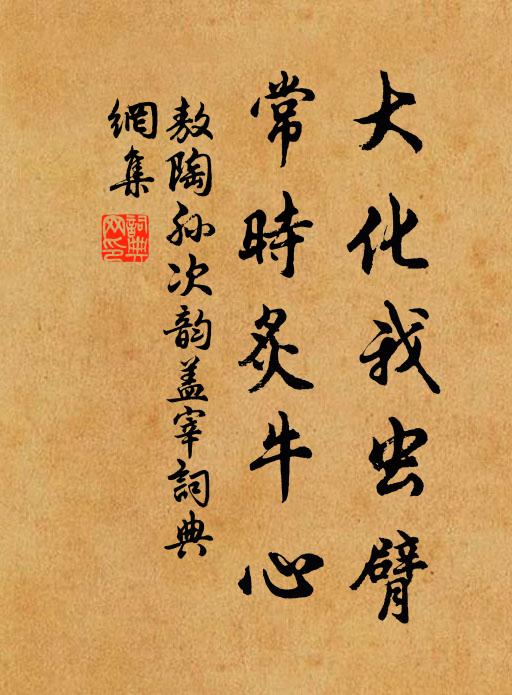 大化我虫臂
常時炙牛心
敖陶孙次韵盖宰詞典
網集
詞典網印